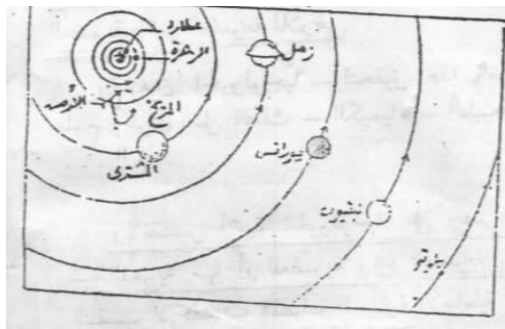 عطارد
الزهرة
زحل
الأرض
المريخ
المشترى
يورانس
نبتيون
بلوتو